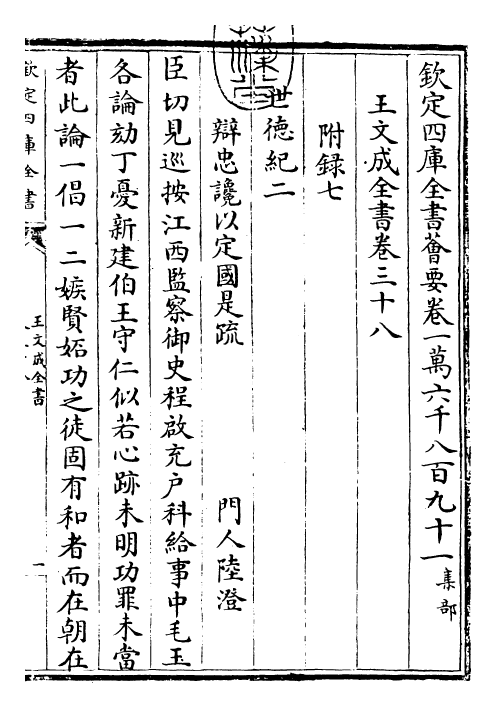 欽定四庫全書薈要卷一萬六千八百九十一 集部
王文成全書卷三十八
附録七
世徳紀二
辯忠讒以定國是疏 門人陸澄
臣切見巡按江西監察御史程啟充户科給事中毛玉
各論劾丁憂新建伯王守仁似若心跡未明功罪未當
者此論一倡一二嫉賢妬功之徒固有和者而在朝在
欽定四庫全書
王文成全書
一